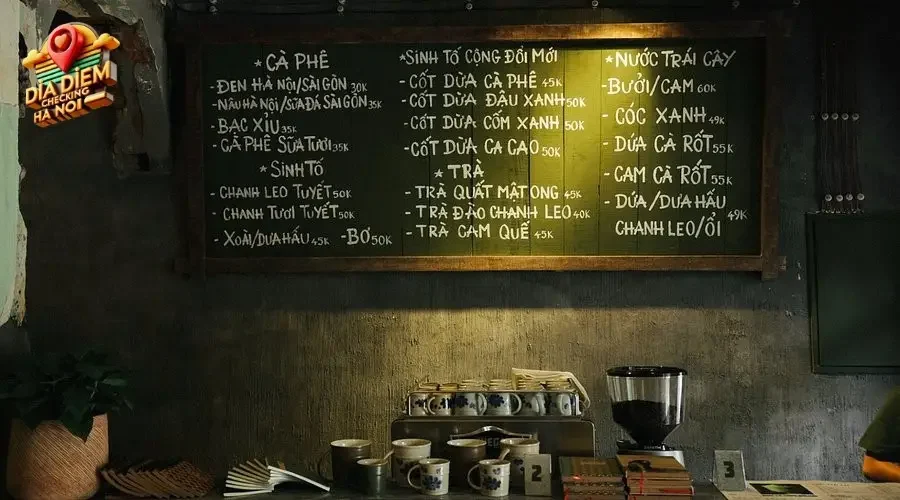 ĐỊA ĐIỂM
CHECKING
HÀ NỘI
* CÀ PHÊ
- ĐEN HÀ NỘI/SÀI GÒN 30K
- NÂU HÀ NỘI/SỮA ĐÁ SÀI GÒN 35K
- BẠC XỈU 35K
- CÀ PHÊ SỮA TƯƠI 35K
* SINH TỐ
- CHANH LEO TUYẾT 50K
- CHANH TƯƠI TUYẾT 50K
- XOÀI/DƯA HẤU 45K - BƠ 50K
* SINH TỐ CỘNG ĐỔI MỚI
- CỐT DỪA CÀ PHÊ 45K
- CỐT DỪA ĐẬU XANH 50K
- CỐT DỪA CỐM XANH 50K
- CỐT DỪA CA CAO 50K
* TRÀ
- TRÀ QUẤT MẬT ONG 45K
- TRÀ ĐÀO CHANH LEO 40K
- TRÀ CAM QUẾ 45K
* NƯỚC TRÁI CÂY
- BƯỞI/CAM 60K
- CÓC XANH 49K
- DỨA CÀ RỐT 55K
- CAM CÀ RỐT 55K
- DỨA/DƯA HẤU
49K
CHANH LEO/ỔI
2
3